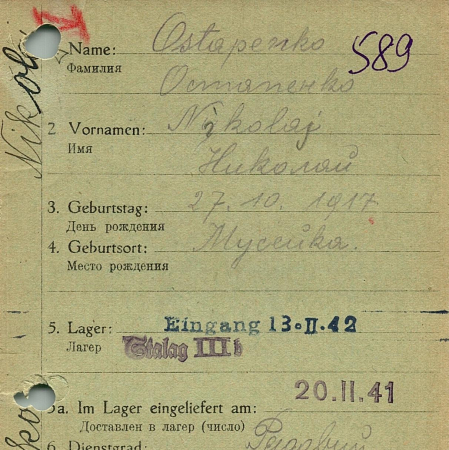 Name: Ostapenko 589
Фамилия Остапенко
2 Vornamen: Nikolaj
Имя Николай
3. Geburtstag: 27. 10. 1917
День рождения
4. Geburtsort: Мусейка.
Место рождения
5. Lager: Eingang 13.II.42
Лагер Stalag III b
20.II.41
5a. Im Lager eingeliefert am:
Доставлен в лагер (число)
6 Dienstgrad: Рядовий
Nikol